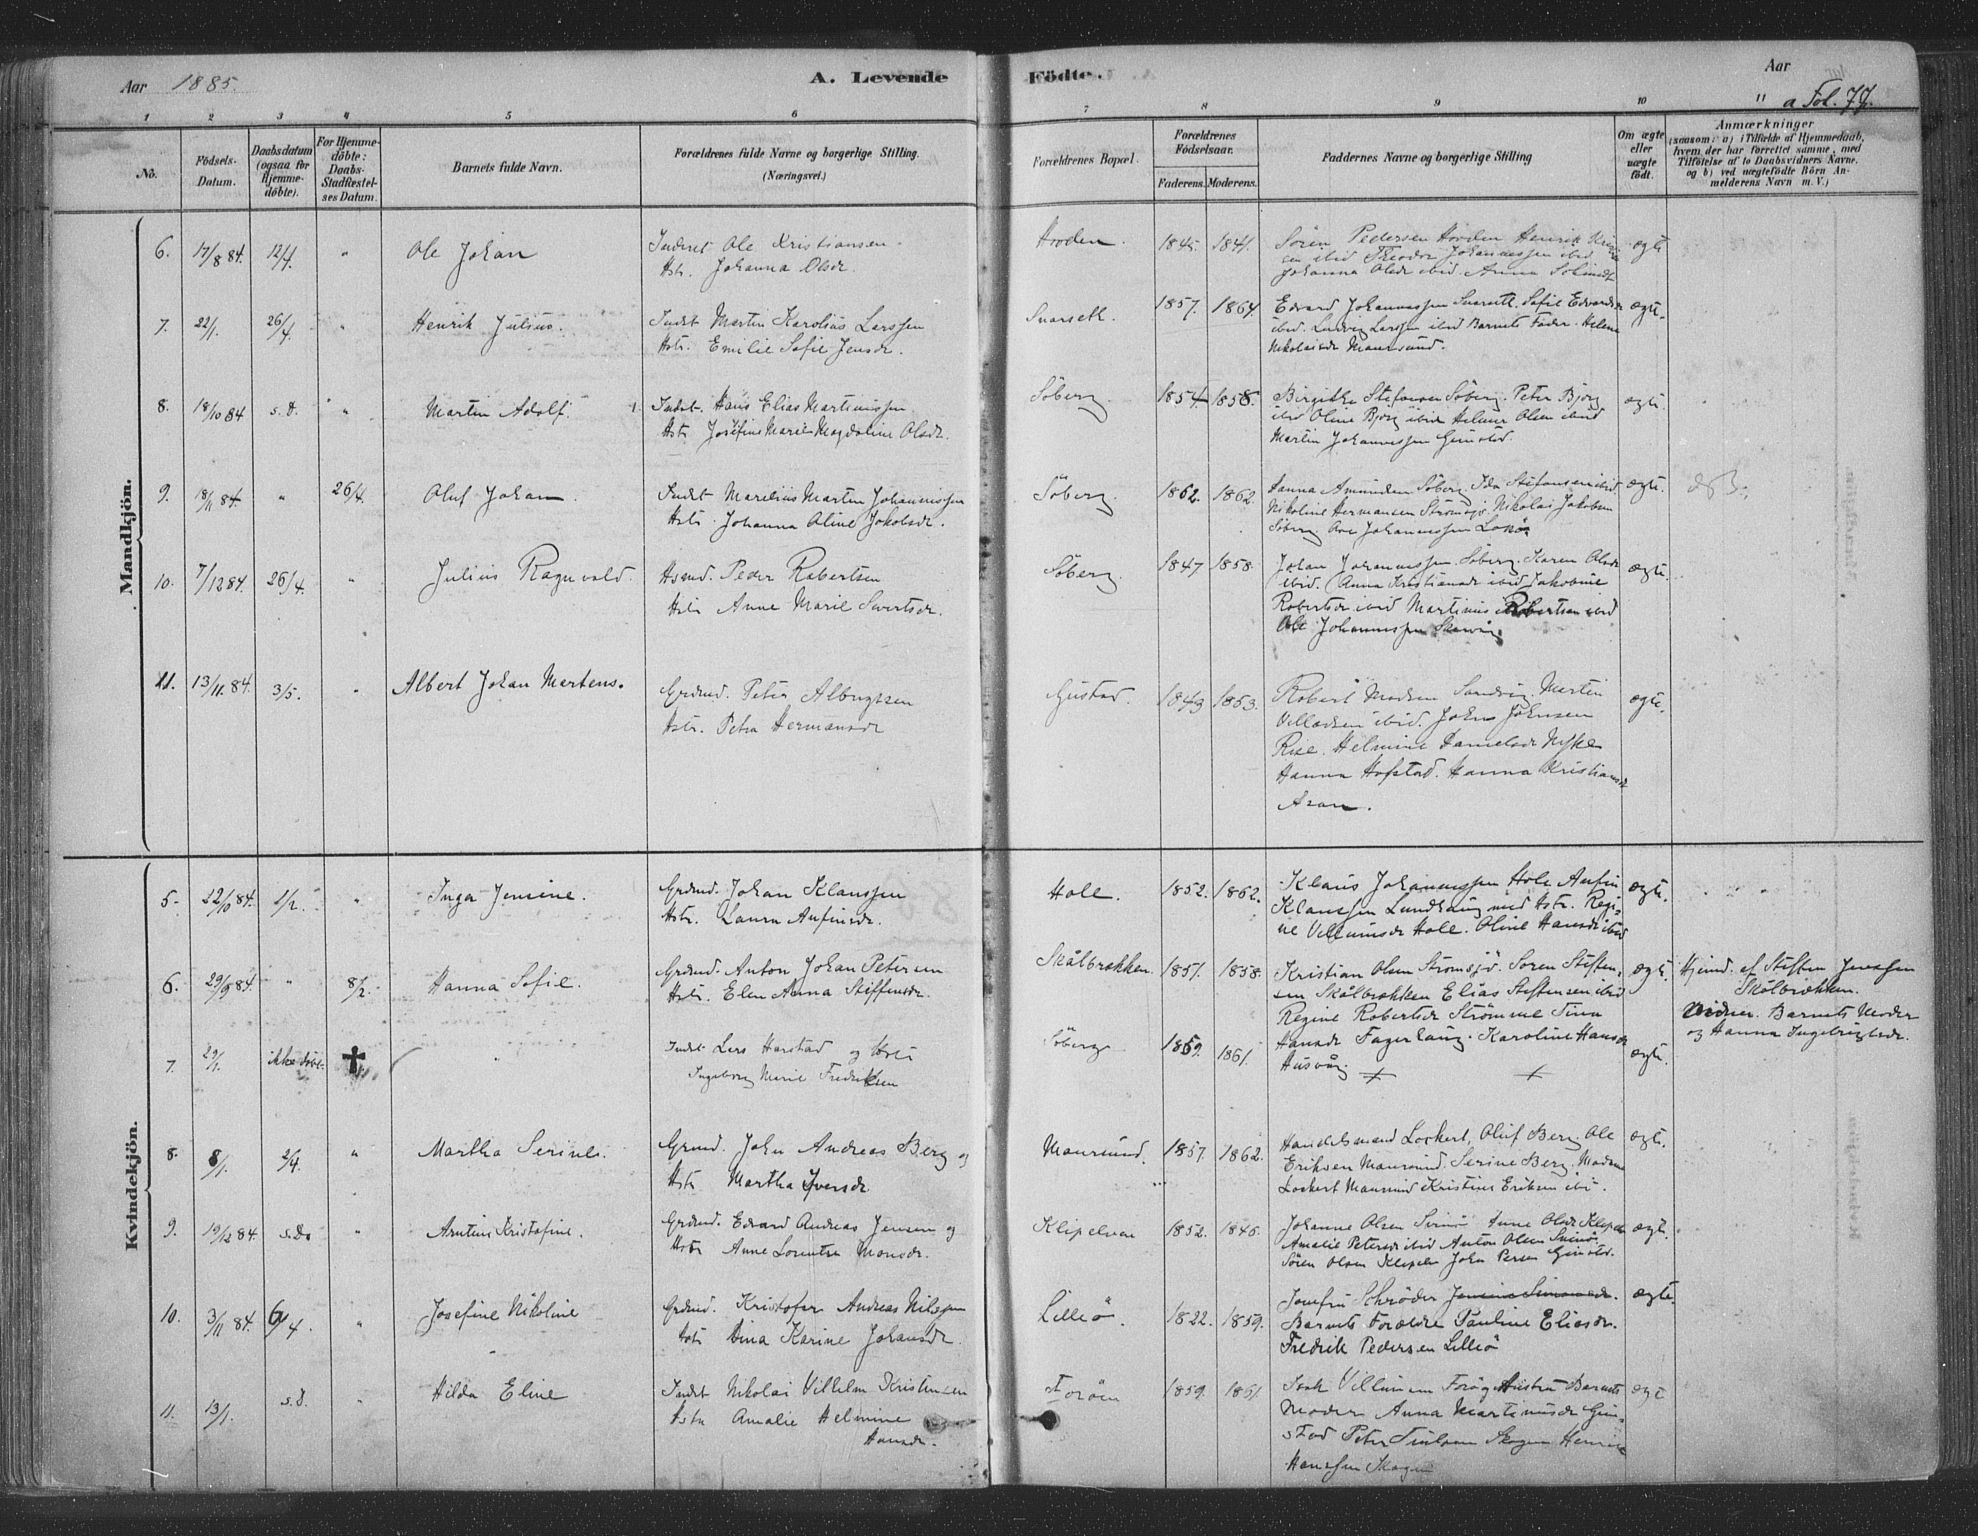 Aar 1885.
A. Levende
Födte.
Aar
a Fol. 77.
1 2 3 4 5 6 7 8 9 10 11
No.
Födsels-
Datum.
Daabsdatum
(ogsaa for
Hjemme-
döbte).
For Hjemme-
döbte:
Daabs-
Stadfæstel-
ses Datum.
Barnets fulde Navn.
Forældrenes fulde Navne og borgerlige Stilling.
(Næringsvei.)
Forældrenes Bopæl.
Forældrenes
Födselsaar.
Faderens. Moderens.
Faddernes Navne og borgerlige Stilling
Om ægte
eller
uægte
födt.
Anmærkninger
(saasom: a) i Tilfælde af Hjemmedaab,
hvem der har forrettet samme, med
Tilföielse af to Daabsvidners Navne.
og b) ved uægtefödte Börn An-
melderens Navn m. V.)
Mandkjön.
6. 17/8 84. 12/4. " Ole Johan
Inderst Ole Kristiansen
Hstr. Johanna Olsdr.
Hovden. 1845. 1841.
Sören Pedersen Hovden Henrik
ibid Theodor Johannessen ibid
Johanna Olsdr ibid. Anna
ægte
7. 22/1. 26/4. " Henrik Julius.
Indst Martin Karolius Larssen
Hstr. Emilie Sofie Jensdr.
1857. 1864.
Edvard Johannessen Sofie
ibid. Ludvig Larssen ibid Barnets Fader. Helene
Nikolaisdr Maursund.
ægte.
8. 18/10 84 s.d. " Martin Adolf.
Indst. Hans Elias Martinussen
Hstr Josefine Marie Magdaline Olsdr.
Söberg. 1854. 1858.
Söberg. Peter Bjerg
ibid Oline Bjerg ibid Helmer Olsen ibid
Martin Johannessen Gimstad.
ægte.
9. 18/11 84. " 26/4. Oluf Johan.
Indst Marelius Martin Johannessen
Hstr. Johanna Aline Jakobsdr.
Söberg. 1862. 1862.
Hanna Amundsen Söberg Ida Stefansen ibid
Nikoline Hermansen Strömsjö Nikolai Jakobsen
Söberg Johannessen
ægte.
10. 7/12 84. 26/4. " Julius Ragnvald.
Hsmd. Peder Robertsen
Hstr Anne Marie Sivertsdr.
Söberg. 1847. 1858.
Johan Johannessen Söberg. Karen Olsdr
ibid. Anna Kristiansdr ibid Jakobine
Robertsdr ibid Martinus Robertsen ibid
Ole Johannessen
ægte.
11. 13/11 84. 3/5. " Albert Johan Martens.
Grdmd. Peter Albrigtsen
Hstr. Petra Hermansdr
Gustad. 1843 1853.
Robert Madsen Sandvig. Martin
Villadsen ibid. Johns Johnsen
Rise. Helmine Danielsdr Nyke
Hanna Hofstad. Hanna Kristiansdr
Asan.
ægte.
Kvindekjön.
5. 22/10 84. 2/2. " Inga Jensine.
Grdmd. Johan Klaussen
Hstr. Laura Anfinsdr.
Holle. 1852. 1862.
Klaus Johannessen Hole Anfin
Klaussen Lundhaug med Hstr. Regi-
ne Villumsdr Holle. Oline Hansdr ibid
ægte.
6. 29/9 84. " 8/2. Hanna Sofie.
Grdmd. Anton Johan Petersen
Hstr. Elen Anna Steffensdr.
Skålbrækken. 1851. 1858.
Kristian Olsen Strömsjö. Soren Steffen-
sen Skålbrækken Elias Steffensen ibid
Regine Robertsdr Strömme Tina
Hansdr Fagerhaug. Karoline Hansdr
Husvåg.
ægte.
Hjemd. af Steffen Jenssen
Skålbrækken.
Vidner. Barnets Moder
og Hanna Ingebrigtsdr.
7. 29/1. ikke döbt. †
Indst Lars Harstad og Hstr
Ingeborg Marie Fredriksen
Söberg 1859. 1861.
ægte.
8. 8/1. 2/4. " Martha Serine.
Grdmd. John Andreas Berg og
Hstr Martha Iversdr.
Maursund. 1857. 1862.
Handelsmand Lockert, Oluf Berg. Ole
Eriksen Maursund. Serine Berg. Madame
Lockert Maursund Kristine Eriksen ibid.
ægte.
9. 19/12 84. s.d. " Arntine Kristofine.
Grdmd. Edvard Andreas Jensen og
Hstr Anne Lorentse Monsdr.
1852. 1846.
Johanne Olsen Anne Olsdr
Amalie Petersdr ibid Anton Olsen
Sören Olsen John Persen Gimstad.
ægte.
10. 3/11 84. 6/4. " Josefine Nikoline
Grdmd. Kristofer Andreas Nilssen
Hstr Dina Karine Johansdr.
Lilleö. 1822. 1859.
Jomfru Schröder
Barnets Forældre Pauline Eliasdr.
Fredrik Pedersen Lilleö
ægte.
11. 13/1. s.d. " Hilda Eline
Indst Nikolai Villelm Kristensen
Hstr Amalie Helmine
Hansdr.
Foröen 1859. 1861.
Isak Villumsen Forøy Hustru Barnets
Moder Anna Martinusdr Gim-
stad Peter Skogen
Hanssen Skogen
ægte